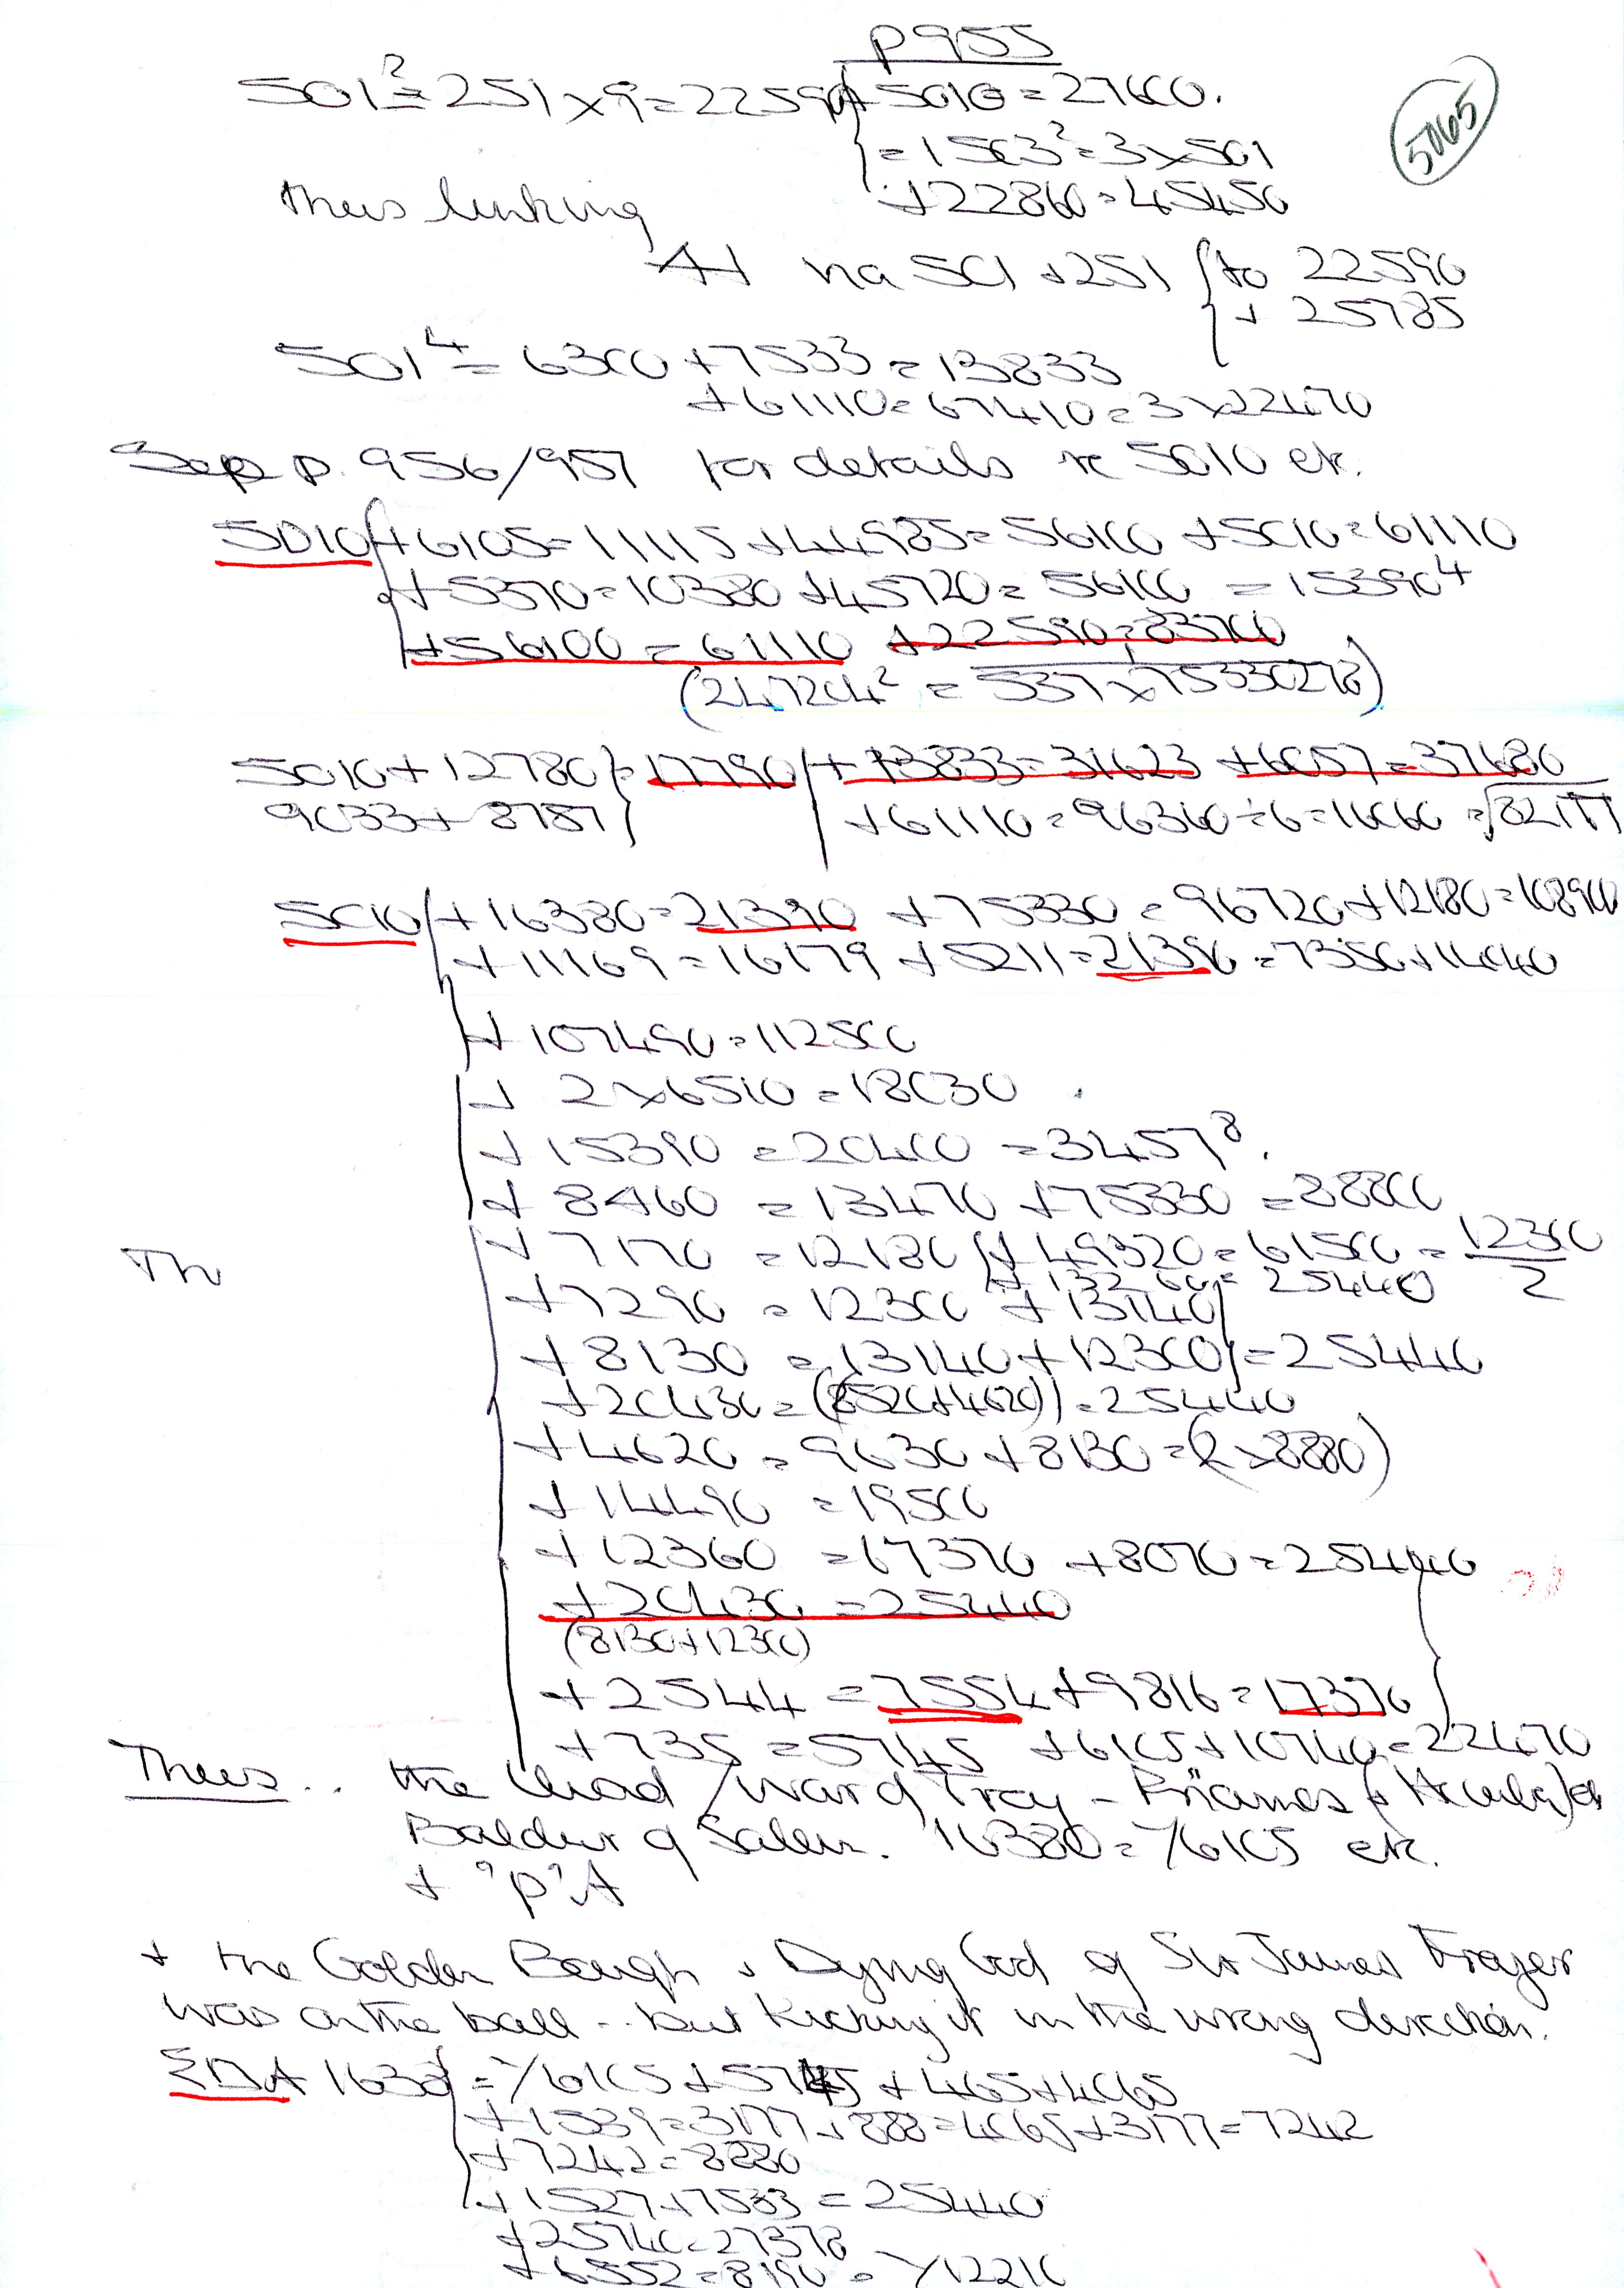 P955
501² = 251 x 9 = 22590 + 5010 = 27600.
5065
= 1503² = 3 x 501
+ 22860 = 45450
thus linking
A1 via 501 + 251 to 22590
+ 25785
501⁴ = 6300 + 7533 = 13833
+ 61110 = 67410 = 3 x 22470
See p. 956/957 for details re 5010 etc.
5010 + 6105 = 11115 + 44985 = 56100 + 5010 = 61110
+ 5370 = 10380 + 45720 = 56100 = 15390⁴
+ 56100 = 61110 + 22590 = 83700
(247204² = 537 x 75330278)
5010 + 12780 = 17790 + 13833 = 31623 + 6057 = 37680
9033 + 8787 + 61110 = 96360 ÷ 6 = 16060 = √82177
5010 + 16380 = 21390 + 75330 = 96720 + 12180 = 108900
+ 11169 = 16179 + 5211 = 21390 = 7350 + 14040
+ 107490 = 112500
+ 2 x 6510 = 18030
+ 15390 = 20400 = 3457⁸.
+ 8460 = 13470 + 75330 = 88800
+ 7170 = 12180 + 49320 = 61500 = 12300/2
Th
+ 13260 = 25440
+ 7290 = 12300 + 13140
+ 8130 = 13140 + 12300 = 25440
+ 20430 = (8520 + 4620) = 25440
+ 4620 = 9630 + 8130 = (2 x 8880)
+ 14490 = 19500
+ 12360 = 17370 + 8070 = 25440
+ 20430 = 25440
(8130 + 12300)
+ 2544 = 7554 + 9816 = 17370
+ 735 = 5745 + 6105 + 10740 = 22470
Thus .. the Iliad / War of Troy - Priamos
Baldur of 16380 = 6105 etc.
+ "P" A
+ the Golden Bough + Dying God of Sir James Frazer
was on the ball .. but kicking it in the wrong direction.
EDDA 1638 = 6105 + 5745 + 465 + 4065
+ 1539 = 3177 + 888 = 4065 + 3177 = 7242
+ 7242 = 8880
+ 1527 + 7533 = 25440
+ 25740 = 27378
+ 6552 = 8190 = 12210